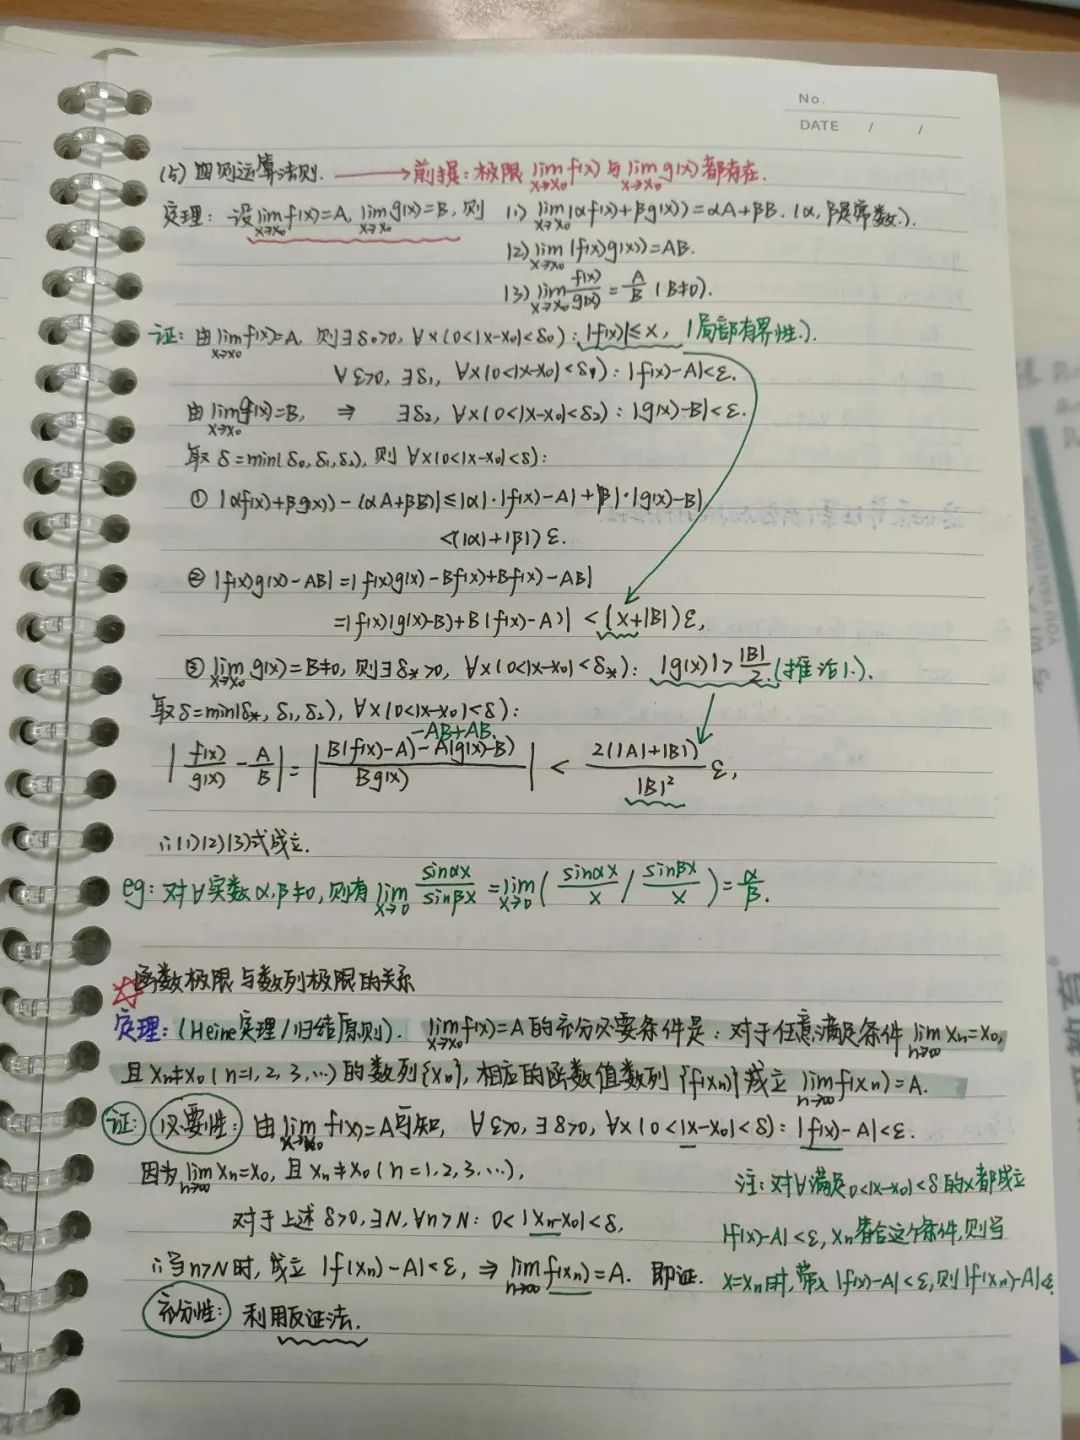 No.
DATE / /
(5) 四则运算法则. ⟶ 前提: 极限 lim_{x→x₀} f(x) 与 lim_{x→x₀} g(x) 都存在.
定理: 设 lim_{x→x₀} f(x)=A, lim_{x→x₀} g(x)=B, 则 (1) lim_{x→x₀} (αf(x)+βg(x))=αA+βB. (α, β是常数.).
(2) lim_{x→x₀} (f(x)g(x))=AB.
(3) lim_{x→x₀} f(x)/g(x) = A/B (B≠0).
证: 由 lim_{x→x₀} f(x)=A, 则∃δ₀>0, ∀x(0<|x-x₀|<δ₀): |f(x)|≤X, (局部有界性.).
∀ε>0, ∃δ₁, ∀x(0<|x-x₀|<δ₁): |f(x)-A|<ε.
由 lim_{x→x₀} g(x)=B, ⇒ ∃δ₂, ∀x(0<|x-x₀|<δ₂): |g(x)-B|<ε.
取 δ=min(δ₀,δ₁,δ₂), 则 ∀x(0<|x-x₀|<δ):
① |αf(x)+βg(x))-(αA+βB)|≤|α|·|f(x)-A|+|β|·|g(x)-B|
<(|α|+|β|)ε.
② |f(x)g(x)-AB|=|f(x)g(x)-Bf(x)+Bf(x)-AB|
=|f(x)(g(x)-B)+B(f(x)-A)| <(X+|B|)ε,
③ lim_{x→x₀} g(x)=B≠0, 则∃δ*>0, ∀x(0<|x-x₀|<δ*): |g(x)|>|B|/2. (推论1.).
取δ=min(δ*, δ₁, δ₂), ∀x(0<|x-x₀|<δ):
-AB+AB.
|f(x)/g(x) - A/B| = |B(f(x)-A)-A(g(x)-B) / Bg(x)| < 2(|A|+|B|)/|B|² ε,
∴(1)(2)(3)式成立.
eg: 对∀实数α,β≠0, 则有 lim_{x→0} sinαx/sinβx = lim_{x→0} (sinαx/x / sinβx/x) = α/β.
☆函数极限与数列极限的关系
定理: (Heine定理/归结原则). lim_{x→x₀} f(x)=A的充分必要条件是: 对于任意满足条件 lim_{n→∞} xₙ=x₀,
且 xₙ≠x₀ (n=1,2,3,…) 的数列{xₙ}, 相应的函数值数列 {f(xₙ)} 成立 lim_{n→∞} f(xₙ)=A.
证: 必要性: 由 lim_{x→x₀} f(x)=A可知, ∀ε>0, ∃δ>0, ∀x(0<|x-x₀|<δ): |f(x)-A|<ε.
因为 lim_{n→∞} xₙ=x₀, 且 xₙ≠x₀ (n=1,2,3,…),
注: 对∀满足0<|x-x₀|<δ的x都成立
对于上述 δ>0, ∃N, ∀n>N: 0<|xₙ-x₀|<δ,
|f(x)-A|<ε, xₙ符合这个条件, 则当
∴当n>N时, 成立 |f(xₙ)-A|<ε, ⇒ lim_{n→∞} f(xₙ)=A. 即证.
x=xₙ时, 带入 |f(x)-A|<ε, 则 |f(xₙ)-A|<ε
充分性: 利用反证法.